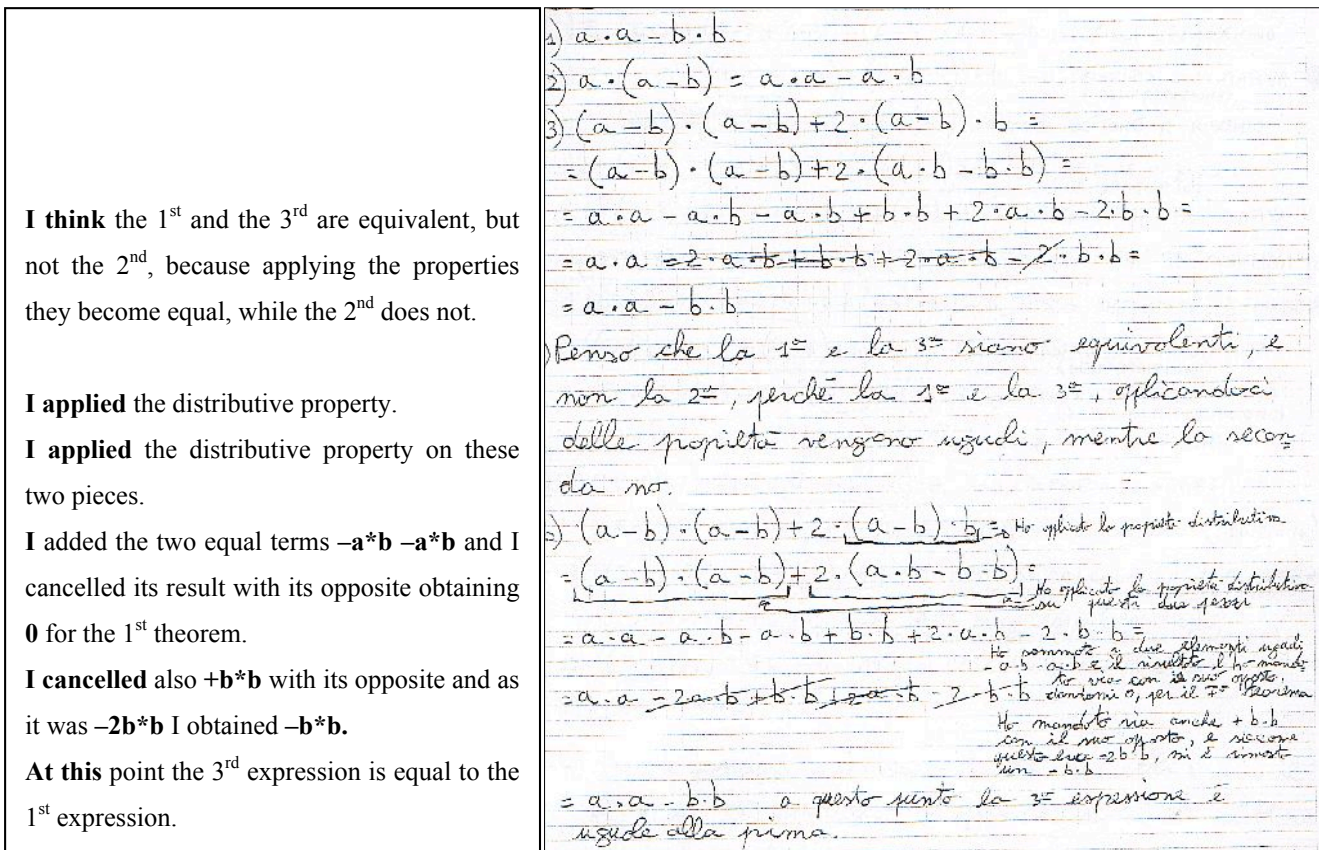 I think the 1st and the 3rd are equivalent, but
not the 2nd, because applying the properties
they become equal, while the 2nd does not.
I applied the distributive property.
I applied the distributive property on these
two pieces.
I added the two equal terms –a*b –a*b and I
cancelled its result with its opposite obtaining
0 for the 1st theorem.
I cancelled also +b*b with its opposite and as
it was –2b*b I obtained –b*b.
At this point the 3rd expression is equal to the
1st expression.
1) a·a - b·b
2) a·(a-b) = a·a - a·b
3) (a-b)·(a-b)+2·(a-b)·b =
= (a-b)·(a-b)+2·(a·b - b·b) =
= a·a - a·b - a·b + b·b + 2·a·b - 2·b·b =
= a·a - 2·a·b + b·b + 2·a·b - 2·b·b =
= a·a - b·b
) Penso che la 1ª e la 3ª siano equivalenti, e
non la 2ª, perché la 1ª e la 3ª, applicandoci
delle propietà vengono uguali, mentre la secon=
da no.
) (a-b)·(a-b)+2·(a-b)·b = Ho applicato la propietà distributiva
= (a-b)·(a-b)+2·(a·b - b·b) =
Ho applicato la propietà distributiva
su questi due pezzi
= a·a - a·b - a·b + b·b + 2·a·b - 2·b·b =
Ho sommato i due elementi uguali
-a·b -a·b e il risultato l'ho manda
to via con il suo opposto,
= a·a - 2a·b + b·b + 2a·b - 2·b·b dandomi 0, per il 1° teorema
Ho mandato via anche + b·b
con il suo opposto, e siccome
questo era -2b·b, mi è rimasto
un - b·b
= a·a - b·b a questo punto la 3ª espressione è
uguale alla prima.